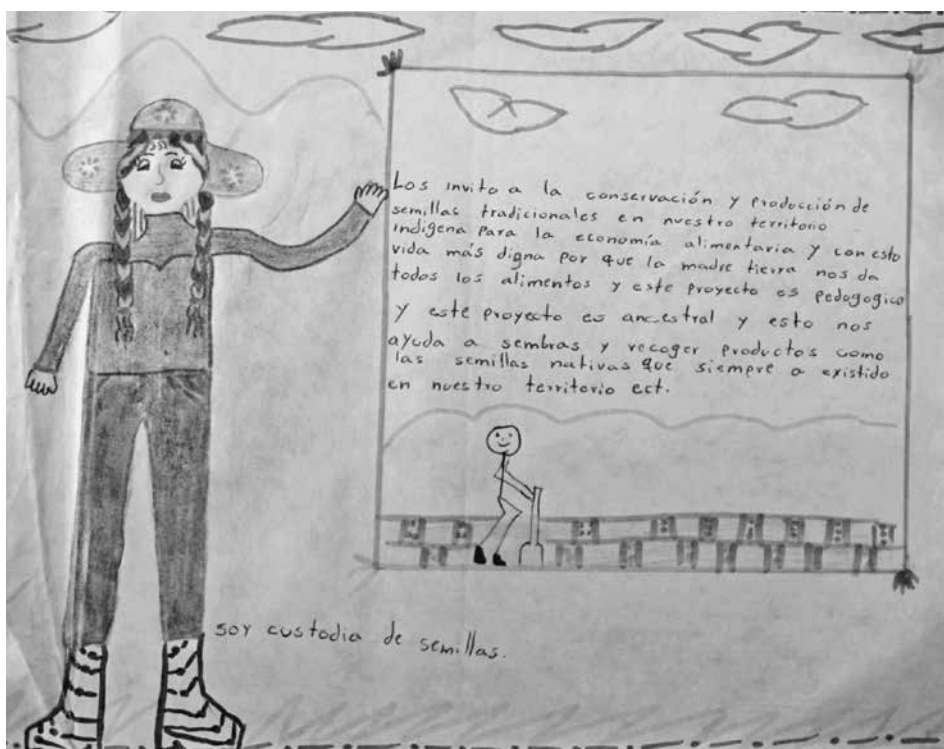 Los invito a la conservación y producción de
semillas tradicionales en nuestro territorio
indígena para la economía alimentaria y con esto
vida más digna por que la madre tierra nos da
todos los alimentos y este proyecto es pedagogico
y este proyecto es ancestral y esto nos
ayuda a sembras y recoger productos como
las semillas nativas que siempre a existido
en nuestro territorio ect.
soy custodia de semillas.